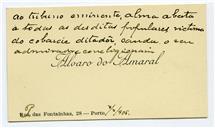 ao tribuno eminente, alma aberta
a todas as desditas populares victima
do cobarde ditador, sauda o seu
admirador e correligionario
Alvaro do Amaral
Rua das Fontainhas, 28 — Porto,